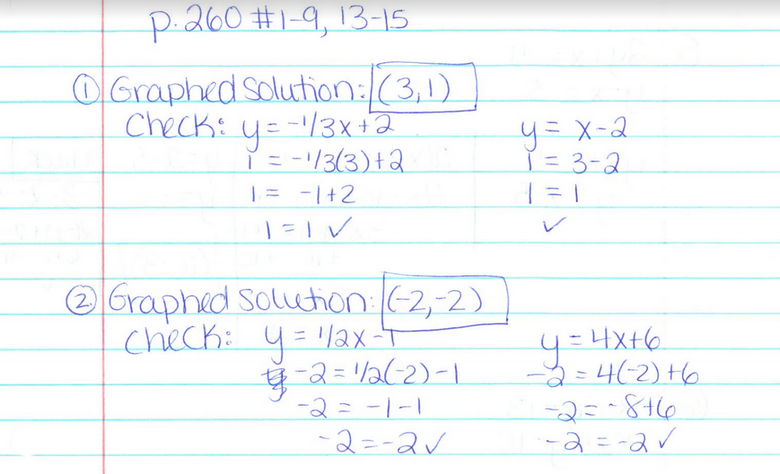 p. 260 #1-9, 13-15
① Graphed Solution: (3,1)
Check: y = -1/3x+2 y = x-2
1 = -1/3(3)+2 1 = 3-2
1 = -1+2 1 = 1
1 = 1 ✓ ✓
② Graphed Solution: (-2,-2)
Check: y = 1/2x-1 y = 4x+6
-2 = 1/2(-2)-1 -2 = 4(-2)+6
-2 = -1-1 -2 = -8+6
-2 = -2 ✓ -2 = -2 ✓